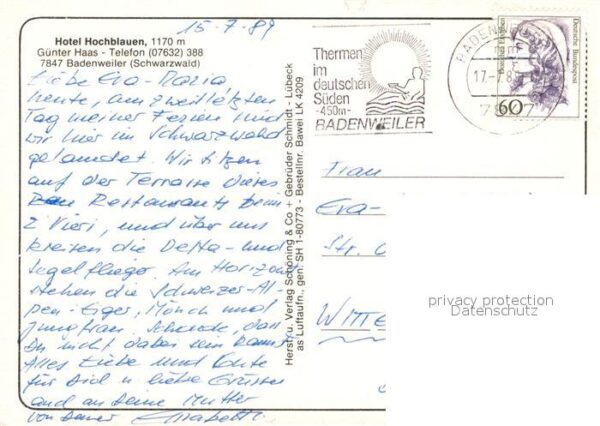 15-7-89
Hotel Hochblauen, 1170 m
Günter Haas - Telefon (07632) 388
7847 Badenweiler (Schwarzwald)
Liebe Eva-Maria
heute, am zweitletzten
Tag meiner Ferien sind
wir hier im Schwarzwald
gelandet. Wir sitzen
auf der Terrasse dieses
Restaurants beim
Z'Vieri, und über uns
kreisen die Delta- und
Segelflieger. Am Horizont
stehen die Schweizer-Al-
pen - Eiger, Mönch und
Jungfrau. Schade, dass
Du nicht dabei sein kannst
Alles Liebe und
für Dich u liebe Grüsse
auch an Deine Mutter
von Deiner Elisabeth
Herst. u. Verlag Schöning & Co + Gebrüder Schmidt - Lübeck
as Luftaufn., gen. SH 1-80773 - Bestellnr. Bawei LK 4209
Thermen
im
deutschen
Süden
-450m-
BADENWEILER
BADENW
17.-7.8
Deutsche Bundespost
60
Frau
Eva-
Str.
WITTE
privacy protection
Datenschutz